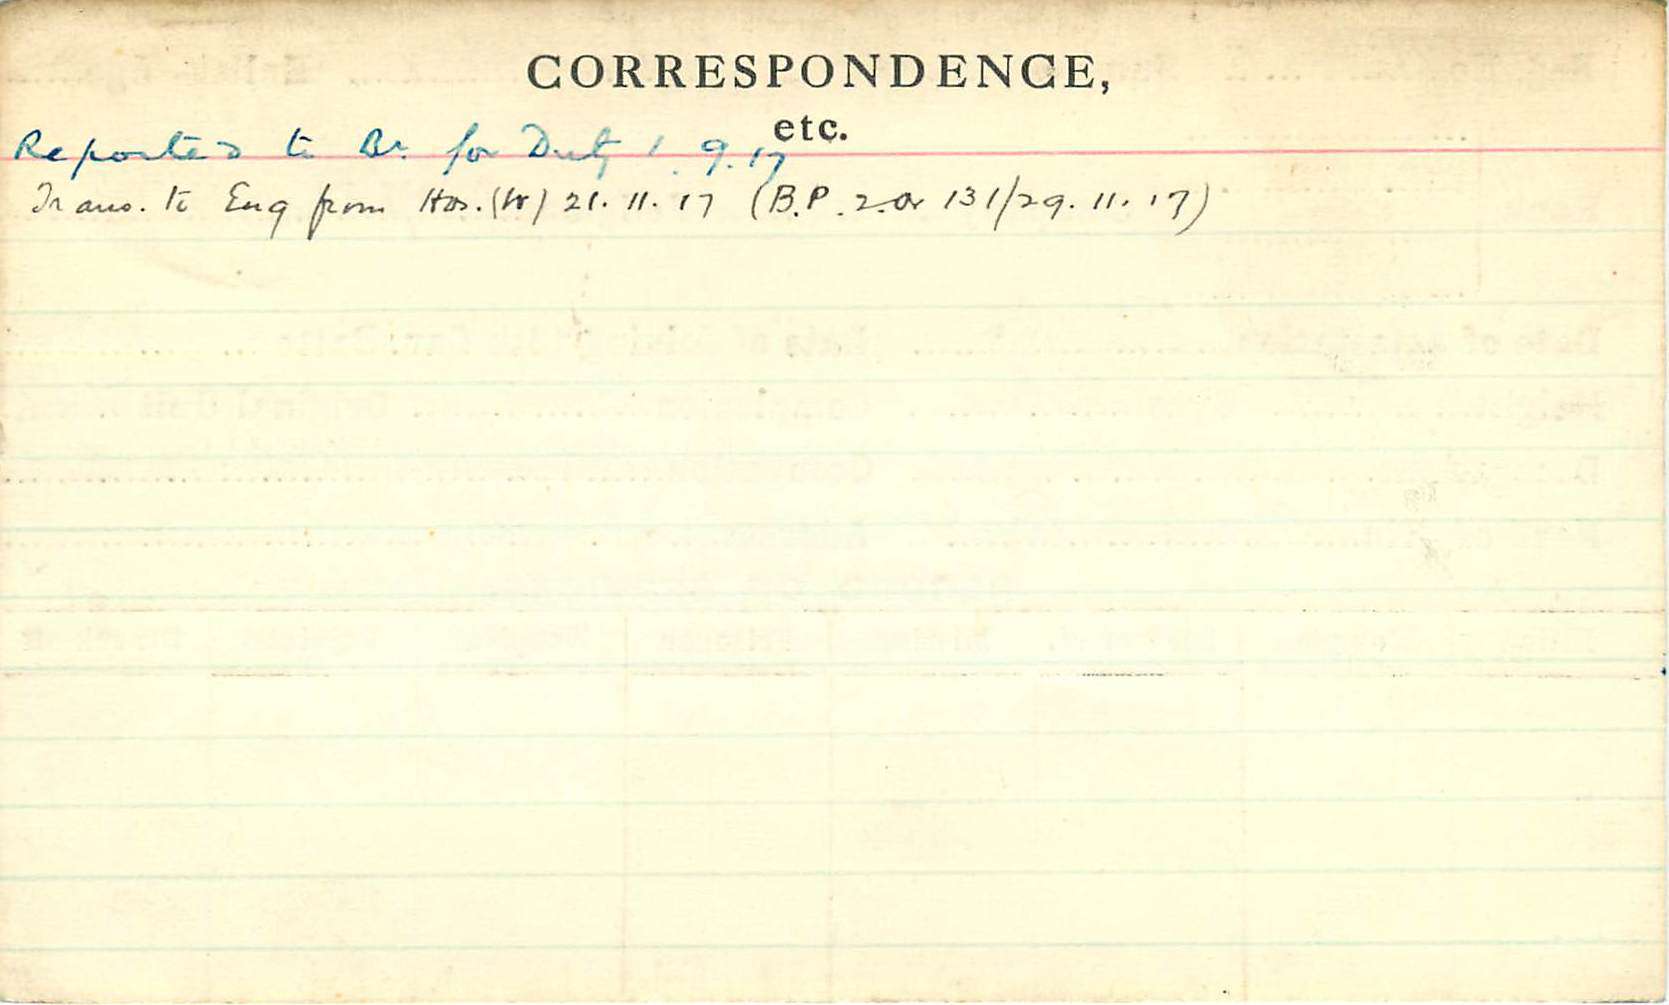 CORRESPONDENCE,
etc.
Reported to Bn. for Duty 1.9.17
Trans. to Eng from Hos. (W) 21.11.17 (B.P. 2.Or 131/29.11.17)